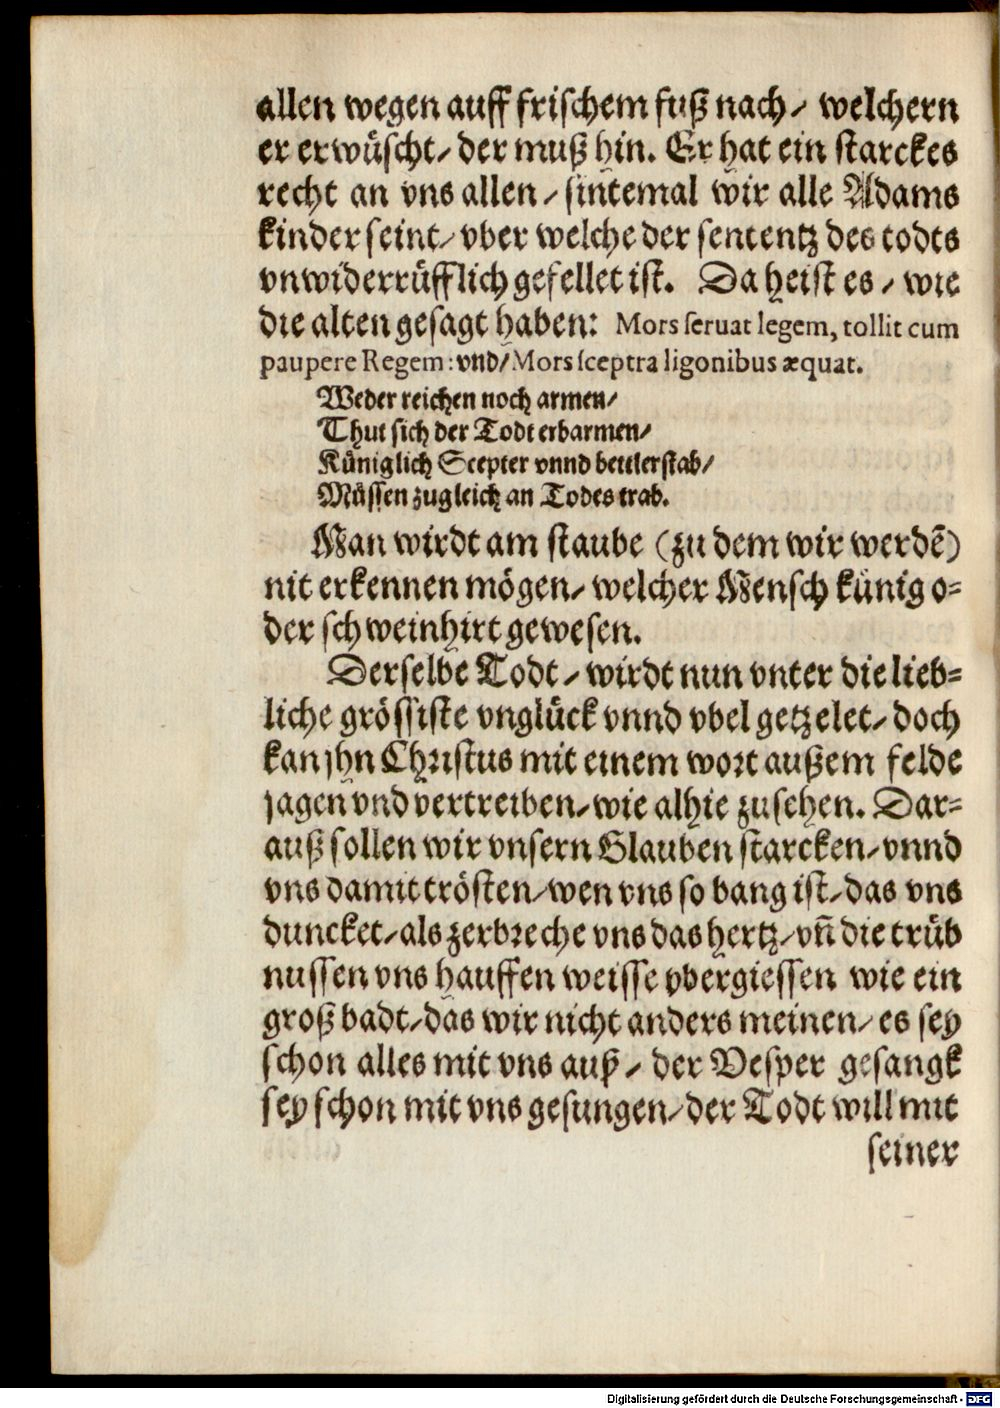 allen wegen auff frischem fuß nach/ welchern
er erwüscht/ der muß hin. Er hat ein starckes
recht an vns allen/ sintemal wir alle Adams
kinder seint/ vber welche der sententz des todts
vnwiderrüfflich gefellet ist. Da heist es/ wie
die alten gesagt haben: Mors seruat legem, tollit cum
paupere Regem: vnd/ Mors sceptra ligonibus æquat.
Weder reichen noch armen/
Thut sich der Todt erbarmen/
Küniglich Scepter vnnd bettlerstab/
Müssen zugleich an Todes trab.
Man wirdt am staube (zu dem wir werdē)
nit erkennen mögen/ welcher Mensch künig o=
der schweinhirt gewesen.
Derselbe Todt/ wirdt nun vnter die lieb=
liche grössiste vnglück vnnd vbel getzelet/ doch
kan jhn Christus mit einem wort außem felde
jagen vnd vertreiben/ wie alhie zusehen. Dar=
auß sollen wir vnsern Glauben starcken/ vnnd
vns damit trösten/ wen vns so bang ist/ das vns
duncket/ als zerbreche vns das hertz/ vn̄ die trüb
nussen vns hauffen weisse vbergiessen wie ein
groß badt/ das wir nicht anders meinen/ es sey
schon alles mit vns auß/ der Vesper gesangk
sey schon mit vns gesungen/ der Todt will mit
seiner
Digitalisierung gefördert durch die Deutsche Forschungsgemeinschaft - DFG